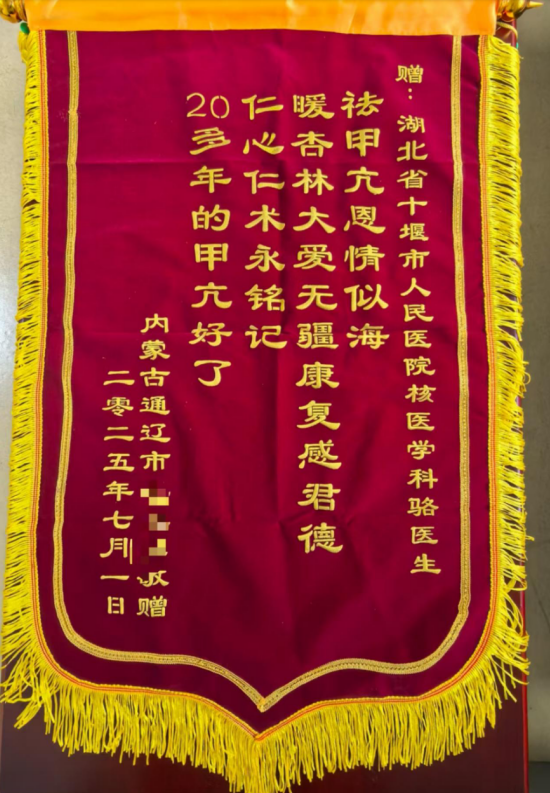 赠：湖北省十堰市人民医院核医学科骆医生
祛甲亢恩情似海
暖杏林大爱无疆康复感君德
仁心仁术永铭记
20多年的甲亢好了
内蒙古通辽市敬赠
二零二五年七月一日